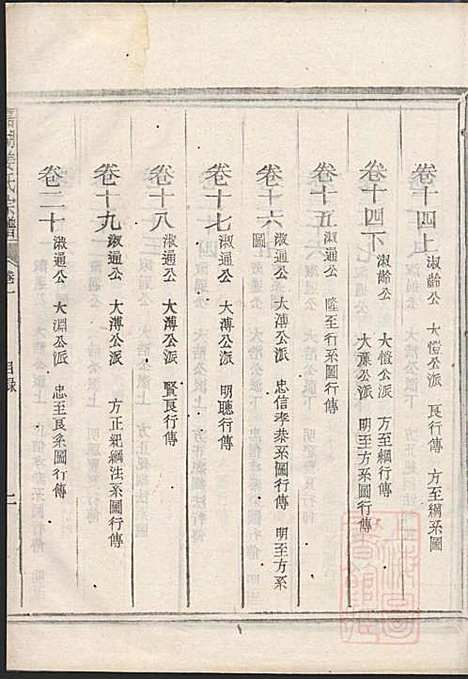 卷十四上 淑齡公 大愷公派 良行傳 方至綱系圖
卷十四下 淑齡公 大愷公派 方至綱行傳
大濂公派 系圖行傳
卷十五 淑通公 隆至行系圖行傳
卷十六 淑通公 大溥公派 忠信孝恭系圖行傳 明至方系
圖
卷十七 淑通公 大溥公派 明聰行傳
卷十八 淑通公 大溥公派 賢良行傳
卷十九 淑通公 大溥公派 方正紀綱法系圖行傳
卷二十 淑通公 大淵公派 忠至良系圖行傳
氏宗譜 卷一 目錄 二